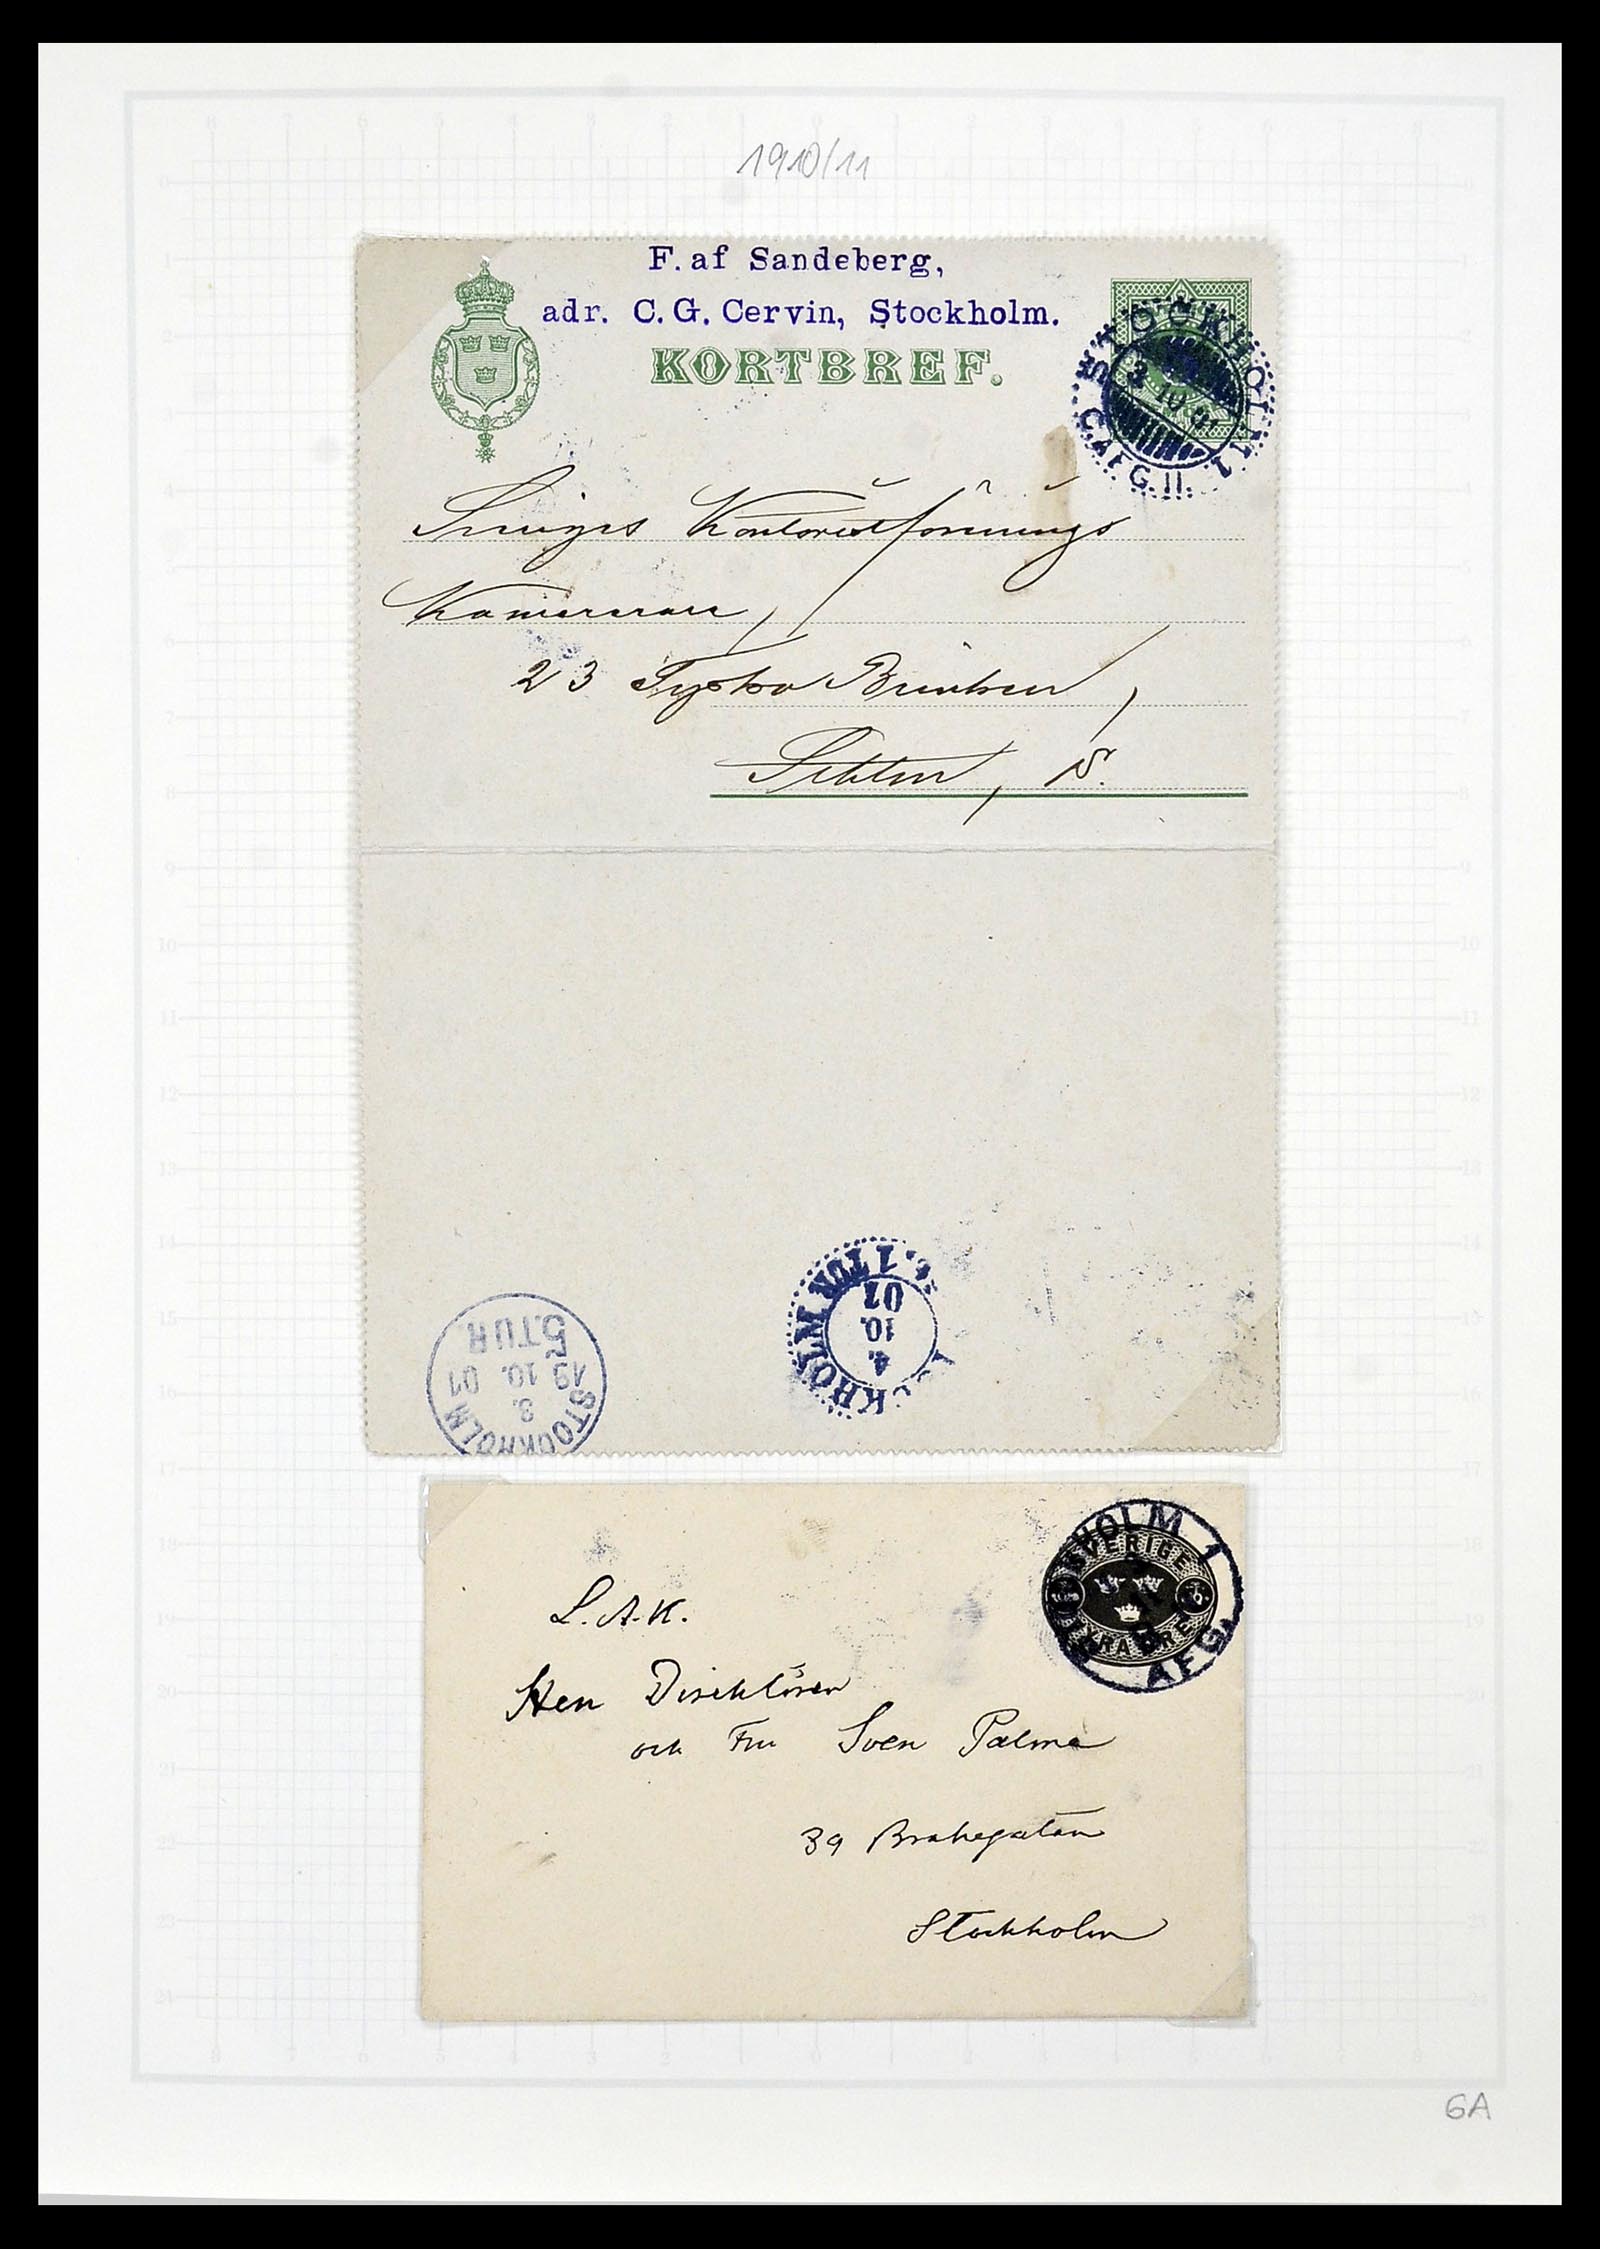 1910/11
F. af Sandeberg,
adr. C. G. Cervin, Stockholm.
KORTBREF.
STOCKHOLM 1
3 10 01
C. AFG. II.
Sveriges Kontoristförenings
Kamrerare,
23 Tyska Brinken,
Sthlm, N.
STOCKHOLM
3.
19 10. 01
5. TUR
KHOLM 1 TUR
4.
10.
01
HOLM 1
SVERIGE
AFG
L. A. K.
Herr Direktören
och Fru Sven Palme
39 Brahegatan
Stockholm
6A